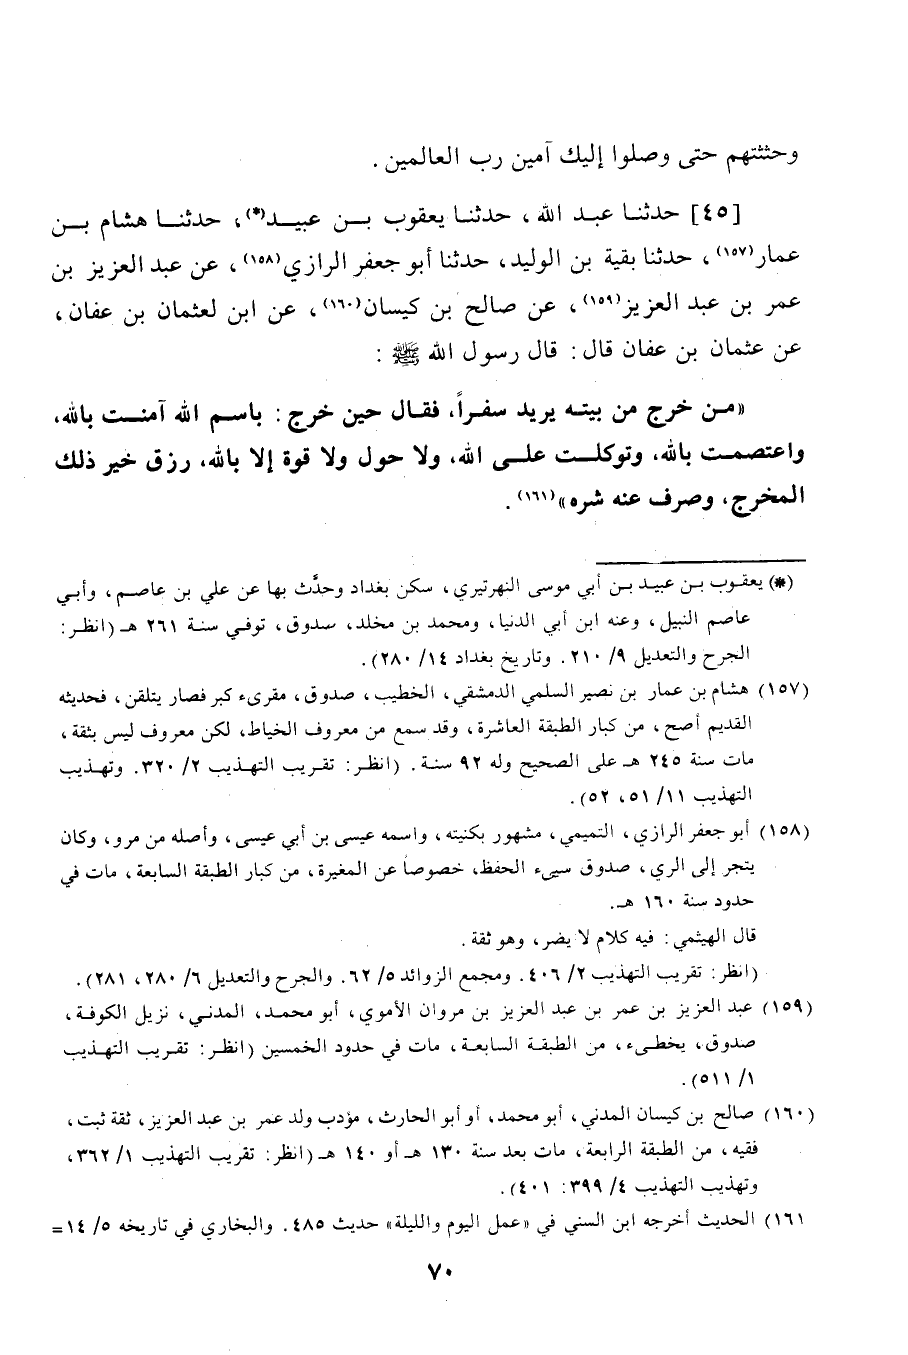 وحثثتهم حتى وصلوا إليك آمين رب العالمين .
[٤٥] حدثنا عبد الله ، حدثنا يعقوب بن عبيد(*)، حدثنا هشام بن
عمار(١٥٧) ، حدثنا بقية بن الوليد، حدثنا أبو جعفر الرازي(١٥٨) ، عن عبد العزيز بن
عمر بن عبد العزيز(١٥٩) ، عن صالح بن كيسان(١٦٠)، عن ابن لعثمان بن عفان ،
عن عثمان بن عفان قال : قال رسول الله ﷺ :
«من خرج من بيته يريد سفراً، فقال حين خرج : باسم الله آمنت بالله،
واعتصمت بالله، وتوكلت على الله، ولا حول ولا قوة إلا بالله، رزق خير ذلك
المخرج، وصرف عنه شره»(١٦١) .
(*) يعقوب بن عبيد بن أبي موسى النهرتيري ، سكن بغداد وحدَّث بها عن علي بن عاصم ، وأبي
عاصم النبيل ، وعنه ابن أبي الدنيا، ومحمد بن مخلد، سدوق، توفي سنة ٢٦١ هـ (انظر:
الجرح والتعديل ٩/ ٢١٠. وتاريخ بغداد ١٤/ ٢٨٠).
(١٥٧) هشام بن عمار بن نصير السلمي الدمشقي، الخطيب، صدوق، مقرىء كبر فصار يتلقن ، فحديثه
القديم أصح ، من كبار الطبقة العاشرة ، وقد سمع من معروف الخياط، لكن معروف ليس بثقة ،
مات سنة ٢٤٥ هـ على الصحيح وله ٩٢ سنة. (انظر: تقريب التهذيب ٢/ ٣٢٠. وتهذيب
التهذيب ١١/ ٥١، ٥٢).
(١٥٨) أبو جعفر الرازي ، التميمي، مشهور بكنيته، واسمه عيسى بن أبي عيسى ، وأصله من مرو، وكان
يتجر إلى الري ، صدوق سيىء الحفظ، خصوصاً عن المغيرة، من كبار الطبقة السابعة، مات في
حدود سنة ١٦٠ هـ.
قال الهيثمي : فيه كلام لا يضر، وهو ثقة .
(انظر: تقريب التهذيب ٢/ ٤٠٦. ومجمع الزوائد ٥/ ٦٢. والجرح والتعديل ٦/ ٢٨٠، ٢٨١).
(١٥٩) عبد العزيز بن عمر بن عبد العزيز بن مروان الأموي، أبو محمد، المدني، نزيل الكوفة،
صدوق، يخطىء، من الطبقة السابعة، مات في حدود الخمسين (انظر: تقريب التهذيب
١/ ٥١١).
(١٦٠) صالح بن كيسان المدني، أبو محمد، أو أبو الحارث، مؤدب ولد عمر بن عبد العزيز، ثقة ثبت،
فقيه، من الطبقة الرابعة، مات بعد سنة ١٣٠ هـ أو ١٤٠ هـ (انظر: تقريب التهذيب ١/ ٣٦٢،
وتهذيب التهذيب ٤/ ٣٩٩: ٤٠١).
١٦١) الحديث أخرجه ابن السني في «عمل اليوم والليلة» حديث ٤٨٥. والبخاري في تاريخه ٥/ ١٤=
٧٠